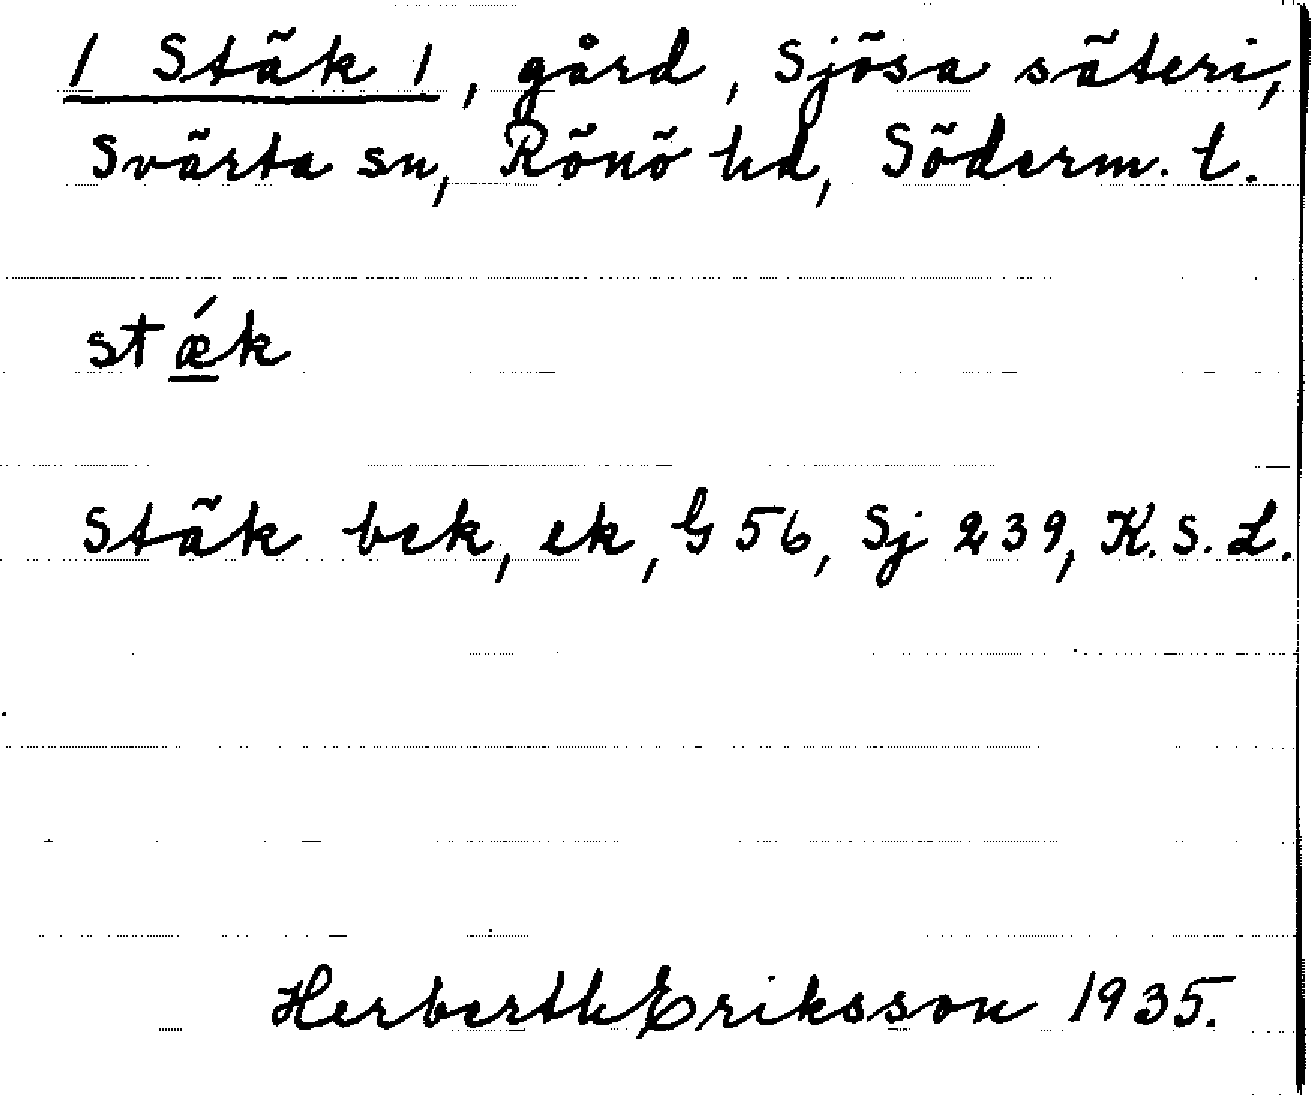 1 Stäk 1, gård, Sjösa säteri,
Svärta sn, Rönö hd, Söderm. l.
stǽk
Stäk bek, ek, G 56, Sj 239, K. S. L.
Herberth Eriksson 1935.